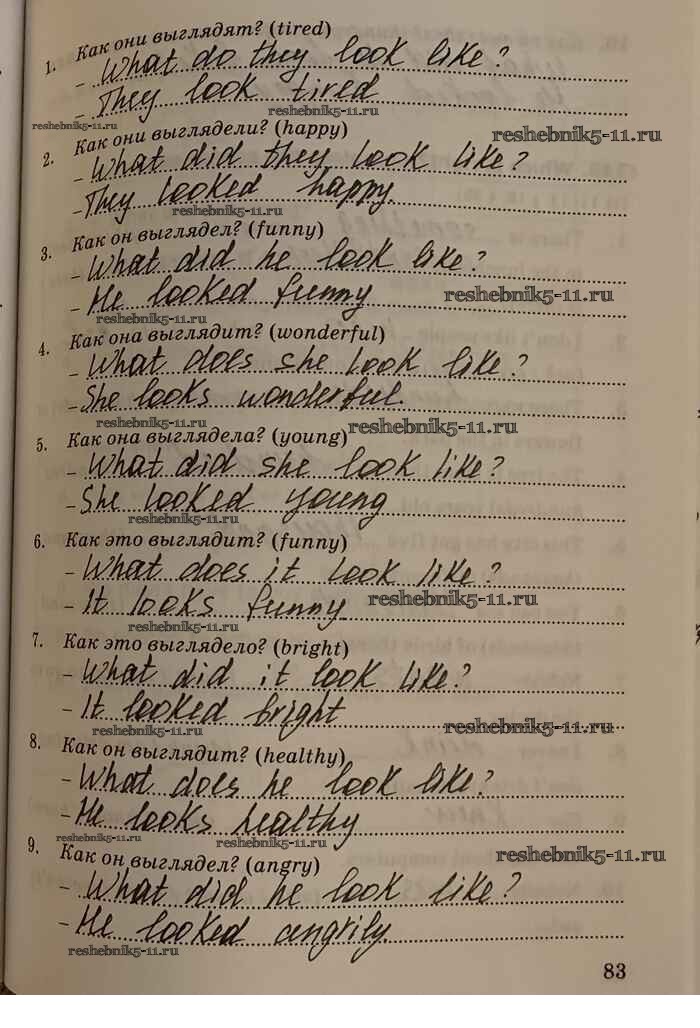 1. Как они выглядят? (tired)
– What do they look like?
– They look tired
reshebnik5-11.ru
reshebnik5-11.ru
2. Как они выглядели? (happy)
reshebnik5-11.ru
– What did they look like?
– They looked happy.
reshebnik5-11.ru
3. Как он выглядел? (funny)
– What did he look like?
– He looked funny
reshebnik5-11.ru
reshebnik5-11.ru
4. Как она выглядит? (wonderful)
– What does she look like?
– She looks wonderful.
reshebnik5-11.ru
5. Как она выглядела? (young)
– What did she look like?
– She looked young
reshebnik5-11.ru
6. Как это выглядит? (funny)
– What does it look like?
– It looks funny
reshebnik5-11.ru
reshebnik5-11.ru
7. Как это выглядело? (bright)
– What did it look like?
– It looked bright
reshebnik5-11.ru
reshebnik5-11.ru
8. Как он выглядит? (healthy)
– What does he look like?
– He looks healthy
reshebnik5-11.ru
reshebnik5-11.ru
9. Как он выглядел? (angry)
reshebnik5-11.ru
– What did he look like?
– He looked angrily.
reshebnik5-11.ru
83